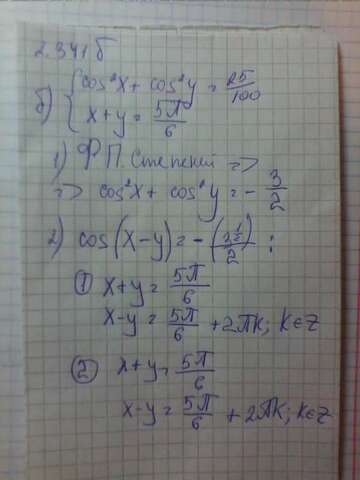 2.341б
б) { cos²x + cos²y = 25/100
x + y = 5π/6
1) Ф.П. Степеней =>
=> cos²x + cos²y = - 3/2
2) cos(x-y) = - (3^(1/2)/2) :
① x+y = 5π/6
x-y = 5π/6 + 2πk; k∈Z
② x+y = 5π/6
x-y = 5π/6 + 2πk; k∈Z